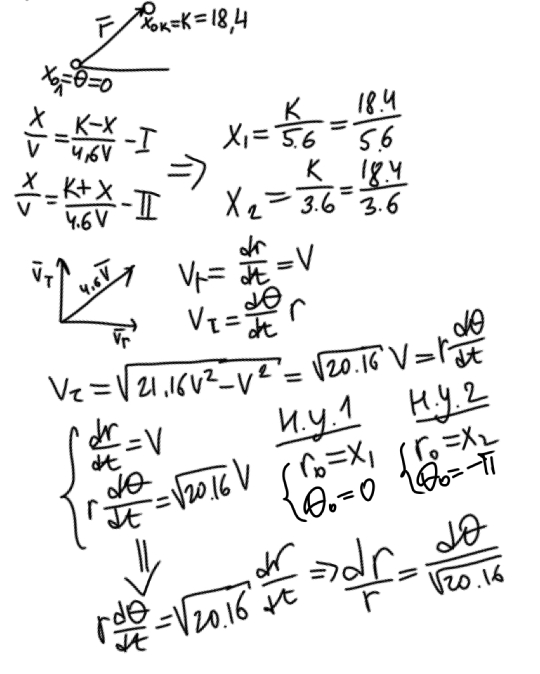 r̅ x₀ₖ=K=18,4
x₀₁=θ=0
x/v = (K-x)/(4,6v) - I
x/v = (K+x)/(4.6v) - II
⇒
x₁ = K/5.6 = 18.4/5.6
x₂ = K/3.6 = 18.4/3.6
v̅τ 4.6v̅ v̅r
vr = dr/dt = v
vτ = dθ/dt r
vτ = √(21,16v²-v²) = √20.16 v = r dθ/dt
{ dr/dt = v
r dθ/dt = √20.16 v
Н.у.1
{ r₀=x₁
θ₀=0
Н.у.2
{ r₀=x₂
θ₀=-π
⇓
r dθ/dt = √20.16 dr/dt ⇒ dr/r = dθ/√20.16